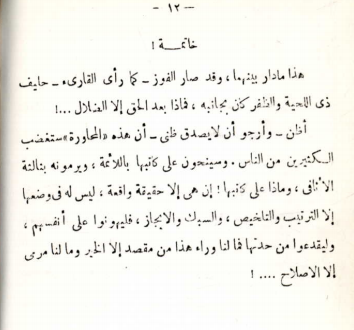 — ١٢ —
خاتمة !
هذا مادار بينهما ، وقد صار الفوز – كما رأى القارىء – حليف
ذى اللحية والظفر كان بجانبه ، فماذا بعد الحق إلا الضلال ...!
أظن – وأرجو أن لايصدق ظنى – أن هذه « المحاورة » ستغضب
الكثيرين من الناس . وسينحون على كاتبها باللائمة ، ويرمونه بثالثة
الأثافى ، وماذا على كاتبها ! إن هى إلا حقيقة واقعة ، ليس له فى وضعها
إلا الترتيب والتلخيص ، والسبك والايجاز ، فليهونوا على أنفسهم ،
وليقدعوا من حدتها فما لنا وراء هذا من مقصد إلا الخير وما لنا مرمى
إلا الاصلاح .... !